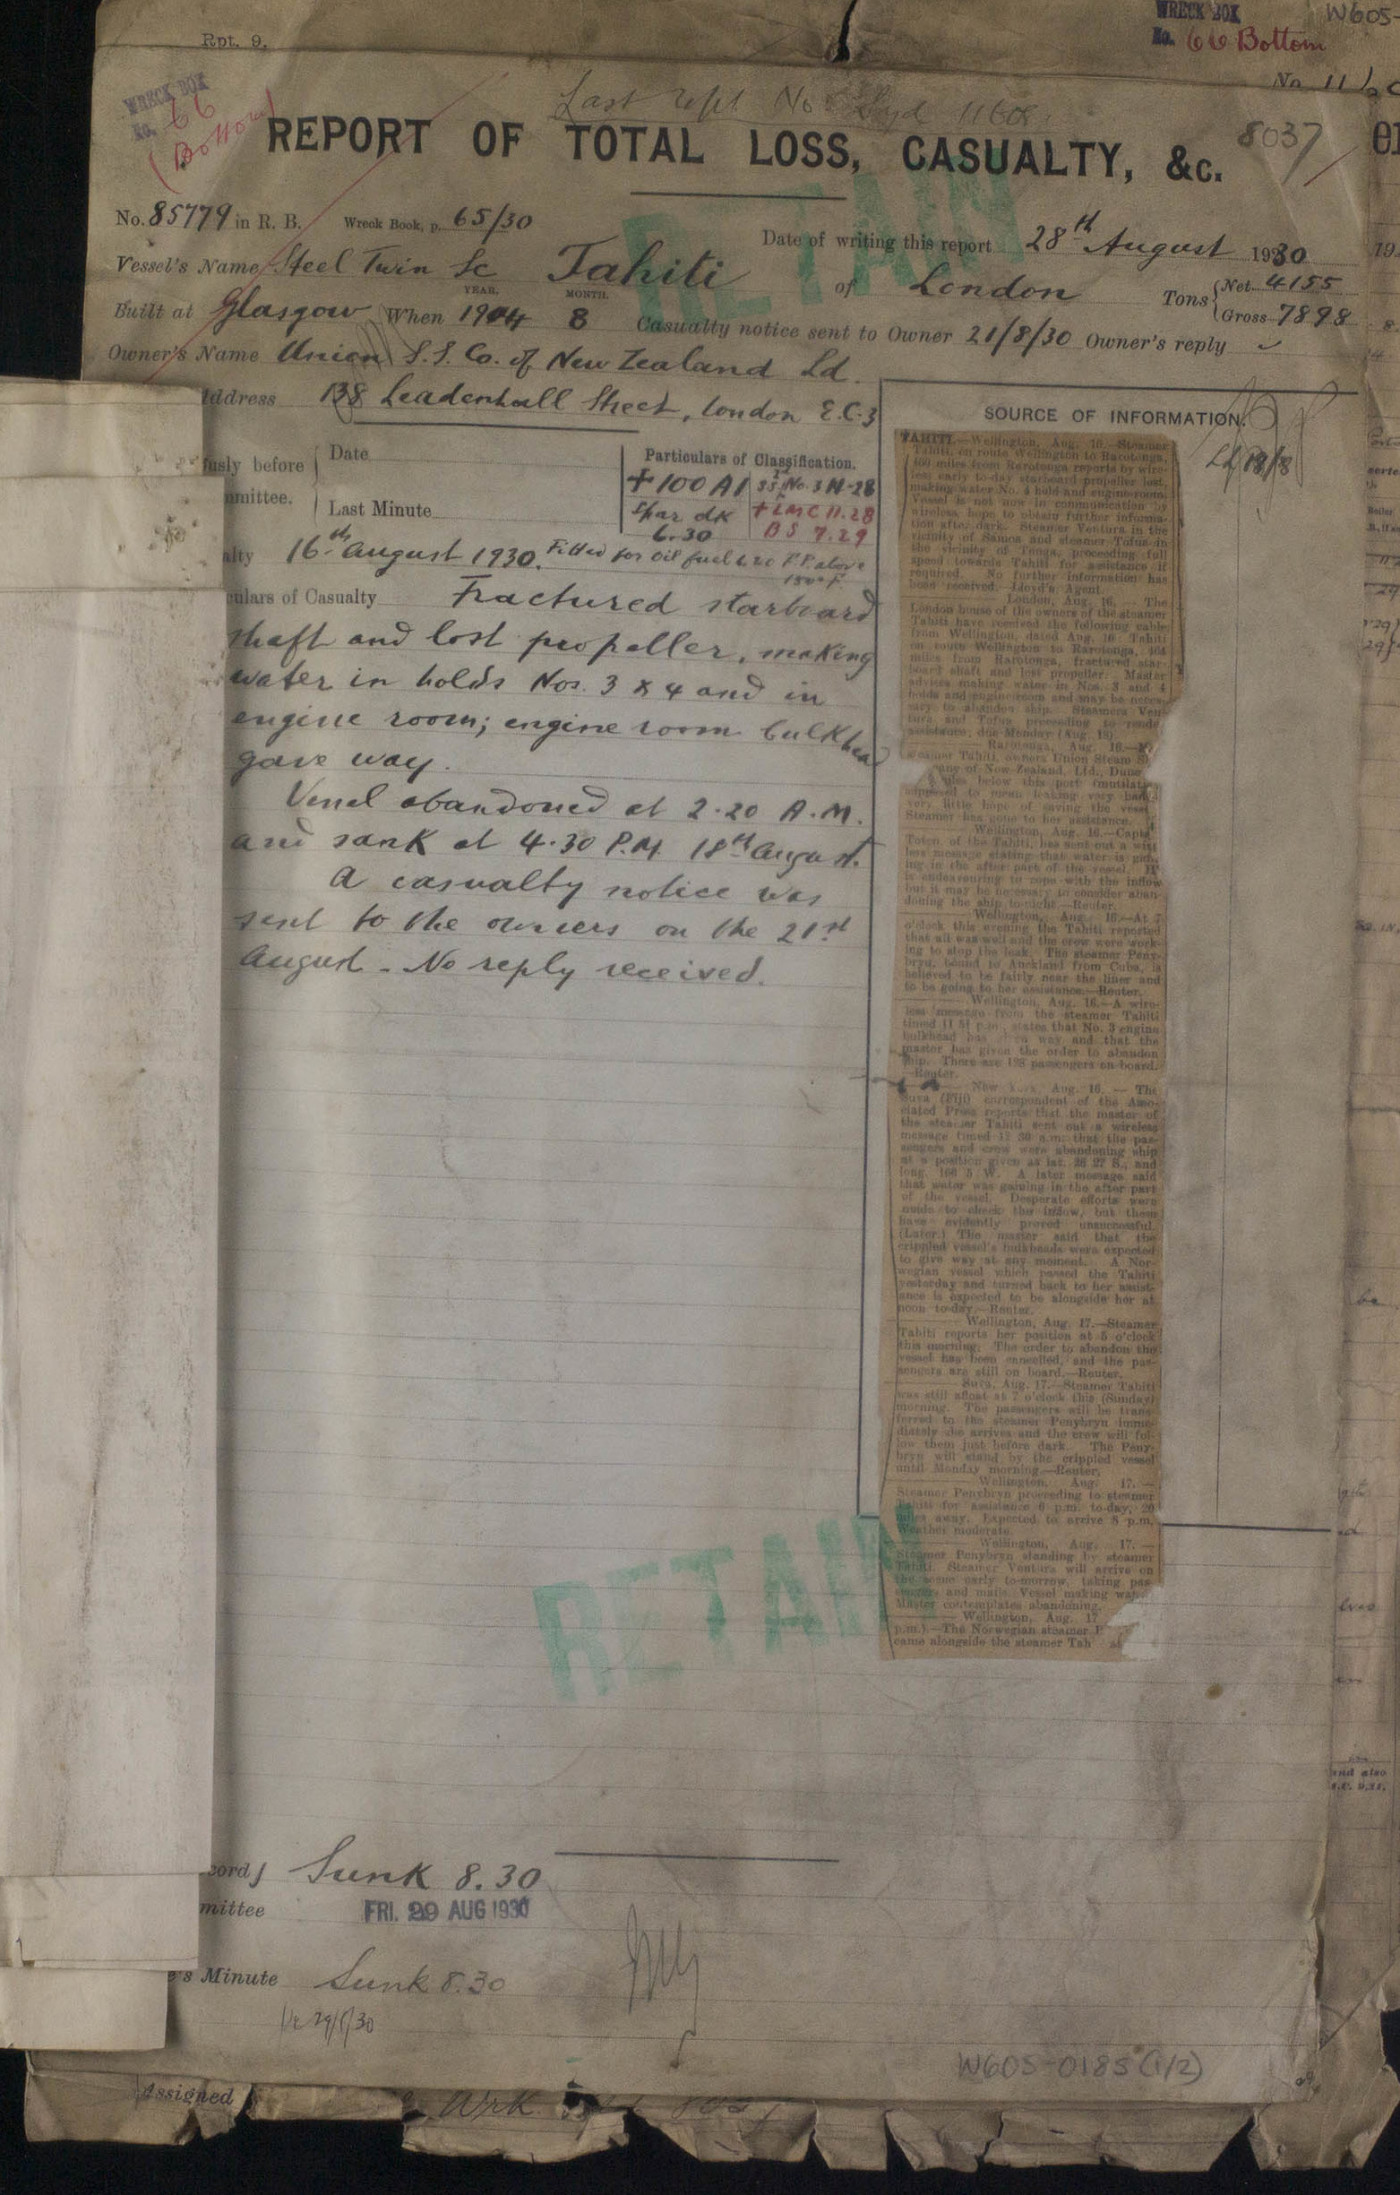 WRECK BOX
No. 66 Bottom
W605-
Rpt. 9.
WRECK BOX
No. 66
(Bottom)
Last rept No
8037
REPORT OF TOTAL LOSS, CASUALTY, &c.
RETAIN
No. 85779 in R. B. Wreck Book, p. 65/30
Date of writing this report 28th August 1930
Vessel's Name Steel Twin Sc Tahiti of London
Tons { Net 4155
Gross 7898
YEAR. MONTH.
Built at Glasgow When 1904 8 Casualty notice sent to Owner 21/8/30 Owner's reply
Owner's Name Union S.S. Co. of New Zealand Ld.
Address 138 Leadenhall Street, London E.C.3
usly before
mmittee.
Date
Last Minute
Particulars of Classification.
+100 A1
Spar dk
6.30
No. 3 11-28
+LMC 11.28
BS 7.29
SOURCE OF INFORMATION.
18/8
alty 16th August 1930. Fitted for oil fuel 6.20 F.P. above
150°F
culars of Casualty Fractured starboard
shaft and lost propeller, making
water in holds Nos. 3 & 4 and in
engine room; engine room bulkhead
gave way.
Vessel abandoned at 2.20 A.M.
and sank at 4.30 P.M. 18th August.
A casualty notice was
sent to the owners on the 21st
August. No reply received.
TAHITI.—Wellington, Aug. 16.—Steamer
Tahiti, en route Wellington to Rarotonga,
460 miles from Rarotonga reports by wire-
less early to-day starboard propeller lost,
making water No. 4 hold and engine-room.
Vessel is not now in communication by
wireless, hope to obtain further informa-
tion after dark. Steamer Ventura in the
vicinity of Samoa and steamer Tofua in
the vicinity of Tonga, proceeding full
speed towards Tahiti for assistance if
required. No further information has
been received.—Lloyd's Agent.
London, Aug. 16.—The
London house of the owners of the steamer
Tahiti have received the following cable
from Wellington, dated Aug. 16: Tahiti
on route Wellington to Rarotonga,
miles from Rarotonga, fractured star-
board shaft and lost propeller. Master
advises making water in Nos. 3 and 4
holds and engine-room and may be neces-
sary to abandon ship. Steamers Ven-
tura and Tofua proceeding to render
assistance, due Monday (Aug. 18).
Rarotonga, Aug. 16.—
eamer Tahiti, owners Union Steam S
any of New Zealand, Ltd., Dune
les below this port (mutilated
supposed to mean leaking very bad
very little hope of saving the vessel
Steamer has gone to her assistance.
Wellington, Aug. 16.—Capt
Toten of the Tahiti, has sent out a wire
less message stating that water is
ing in the after part of the vessel. H
is endeavouring to cope with the inflow
but it may be necessary to consider aban-
doning the ship to-night.—Reuter.
Wellington, Aug. 16.—At 7
o'clock this evening the Tahiti reported
that all was well and the crew were work-
ing to stop the leak. The steamer Peny-
bryn, bound to Auckland from Cuba, is
believed to be fairly near the liner and
to be going to her assistance.—Reuter.
Wellington, Aug. 16.—A wire-
less message from the steamer Tahiti
timed 11 51 p.m., states that No. 3 engine
bulkhead has given way and that the
master has given the order to abandon
ship. There are 128 passengers on board.
—Reuter.
New York, Aug. 16.—The
Suva (Fiji) correspondent of the Asso-
ciated Press reports that the master of
the steamer Tahiti sent out a wireless
message timed 12 30 a.m. that the pas-
sengers and crew were abandoning ship
at a position given as lat. 26 27 S., and
long. 166 5 W. A later message said
that water was gaining in the after part
of the vessel. Desperate efforts were
made to check the inflow, but these
have evidently proved unsuccessful.
(Later.) The master said that the
crippled vessel's bulkheads were expected
to give way at any moment. A Nor-
wegian vessel which passed the Tahiti
yesterday and turned back to her assist-
ance is expected to be alongside her at
noon to-day.—Reuter.
Wellington, Aug. 17.—Steamer
Tahiti reports her position at 5 o'clock
this morning. The order to abandon the
vessel has been cancelled, and the pas-
sengers are still on board.—Reuter.
Suva, Aug. 17.—Steamer Tahiti
was still afloat at 7 o'clock this (Sunday)
morning. The passengers will be trans-
ferred to the steamer Penybryn imme-
diately she arrives and the crew will fol-
low them just before dark. The Peny-
bryn will stand by the crippled vessel
until Monday morning.—Reuter.
Wellington, Aug. 17.—
Steamer Penybryn proceeding to steamer
Tahiti for assistance 6 p.m. to-day, 20
miles away. Expected to arrive 8 p.m.
Weather moderate.
Wellington, Aug. 17.—
Steamer Penybryn standing by steamer
Tahiti. Steamer Ventura will arrive on
the scene early to-morrow, taking pas-
sengers and mails. Vessel making wat
Master contemplates abandoning.
Wellington, Aug. 17
p.m.).—The Norwegian steamer P
came alongside the steamer Tah
RETAIN
cord} Sunk 8.30
mittee FRI. 29 AUG 1930
e's Minute Sunk 8.30
29/8/30
W605-0185 (1/2)
Assigned
and also